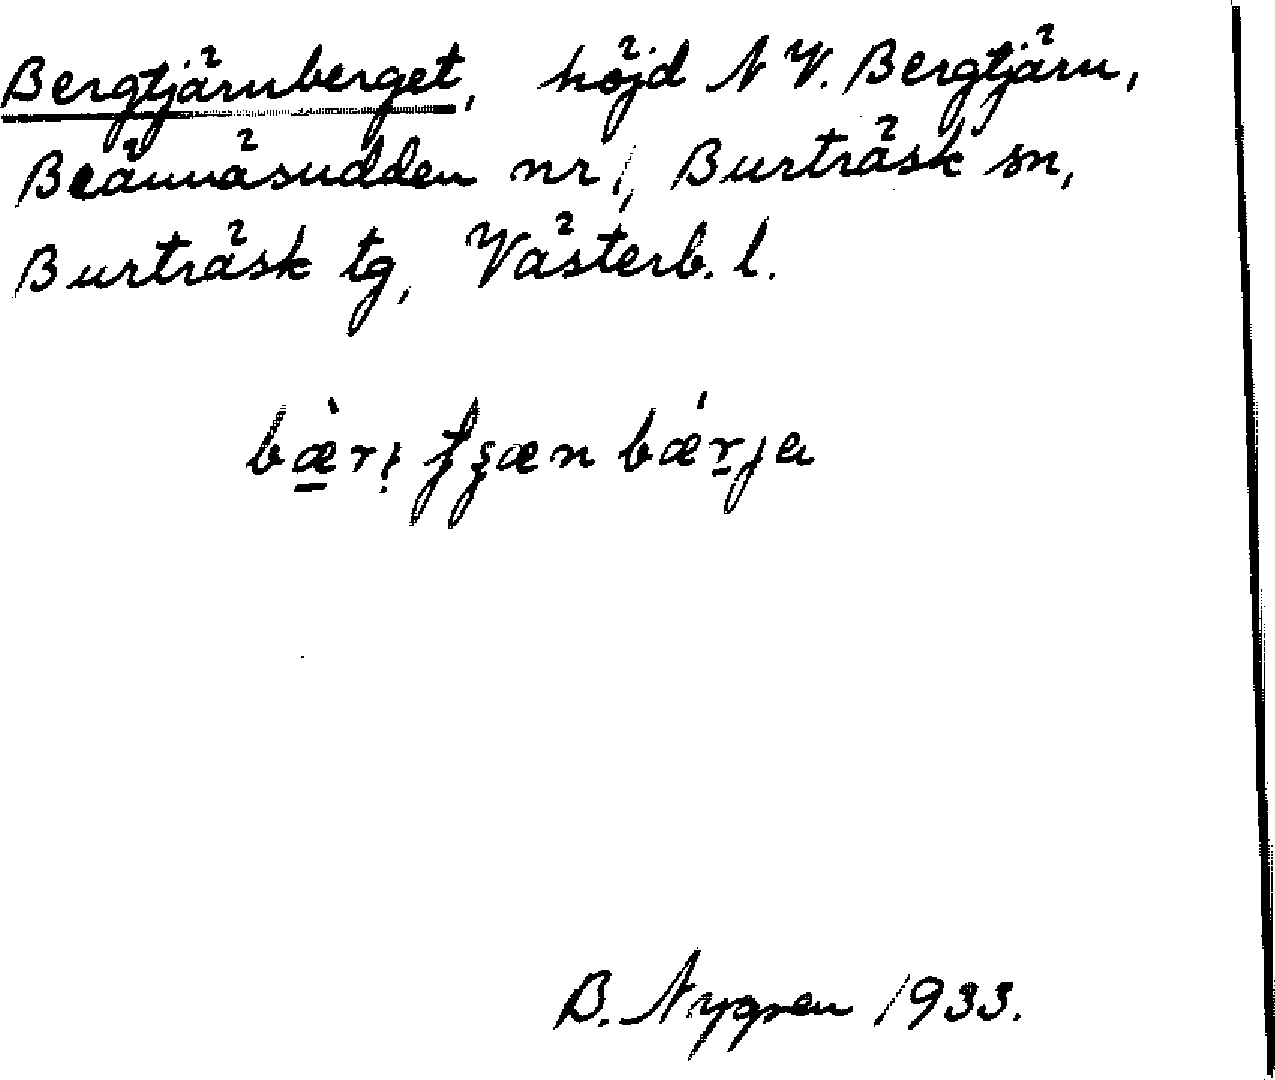 Bergtjärnberget, höjd N V. Bergtjärn,
Brännäsudden nr 1, Burträsk sn,
Burträsk tg, Västerb. l.
B. Nygren 1933.